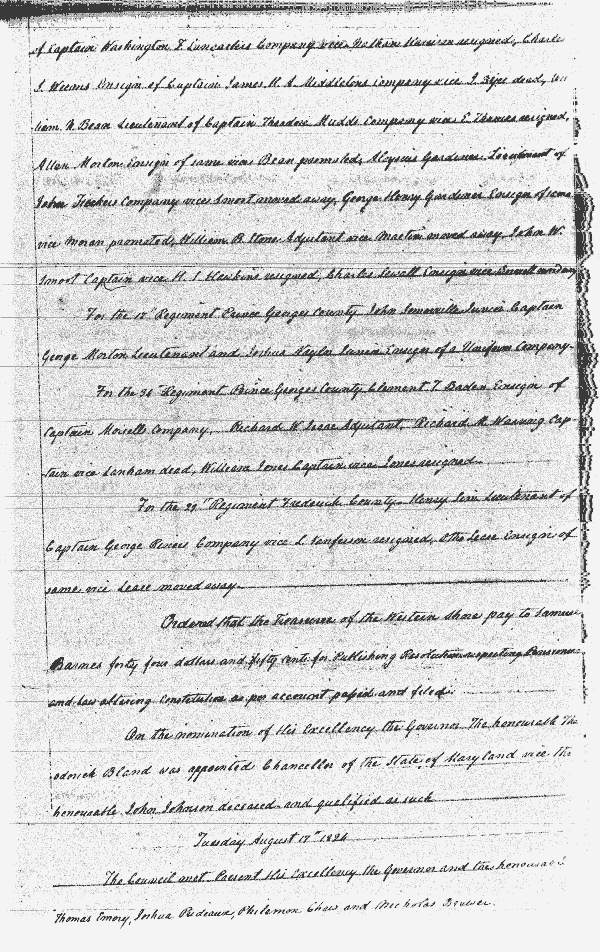 of Captain Washington F. Lancasters Company vice Nathan Harrison resigned, Charles
J. Weems Ensign of Captain James H. A. Middletons Company vice J. dead, Wil
liam N. Bean Lieutenant of Captain Theodore Mudds Company vice E. Thomas resigned,
Allen Morton Ensign of same vice Bean promoted, Aloysius Gardiner Lieutenant of
John Company vice Smoot moved away, George Henry Gardiner Ensign of same
vice Moran promoted, William B. Stone Adjutant vice Martin moved away. John W.
Smoot Captain vice H. S. Hawkins resigned, Charles Sewall Ensign vice
For the 17th Regiment Prince Georges County John Somerville Junior Captain
George Morton Lieutenant and Joshua Naylor Junior Ensign of a Uniform Company.
For the 34 Regiment Prince Georges County Clement T. Baden Ensign of
Captain Company, Richard W. Adjutant, Richard M. Waring Cap-
tain vice Lanham dead, William Jones Captain vice Jones resigned.
For the 29th Regiment Frederick County Henry Lieutenant of
Captain George Company vice L. resigned, Otho Lease Ensign of
same vice Lease moved away.
Ordered that the Treasurer of the Western Shore pay to Samuel
Barnes forty four dollars and fifty cents for Publishing Resolution respecting Pensioners
and Law altering Constitution as per account passed and filed.
On the nomination of His Excellency the Governor The honourable The
odorick Bland was appointed Chancellor of the State of Maryland vice the
honourable John Johnson deceased and qualified as such
Tuesday August 17th 1824
The Council met. Present His Excellency the Governor and the honourable
Thomas Emory, Joshua Prideaux, Philemon Chew and Nicholas Brewer.